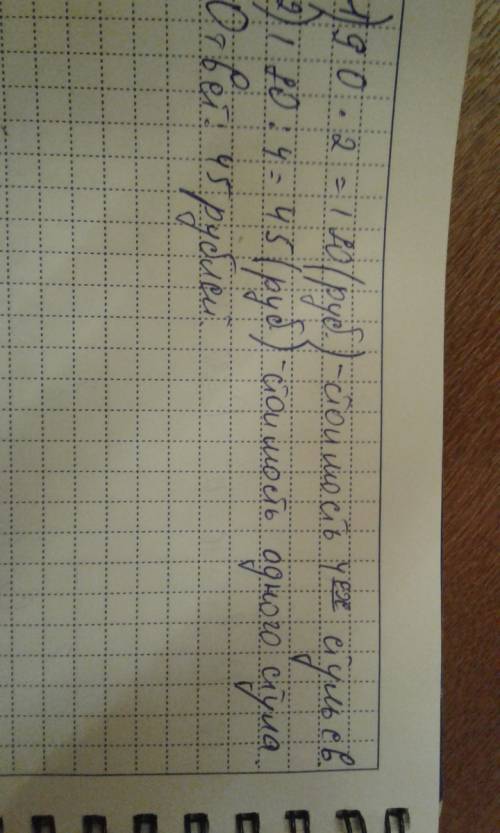 1) 90 · 2 = 180 (руб.) - стоимость 4ех стульев
2) 180 : 4 = 45 (руб) - стоимость одного стула.
Ответ: 45 рублей.